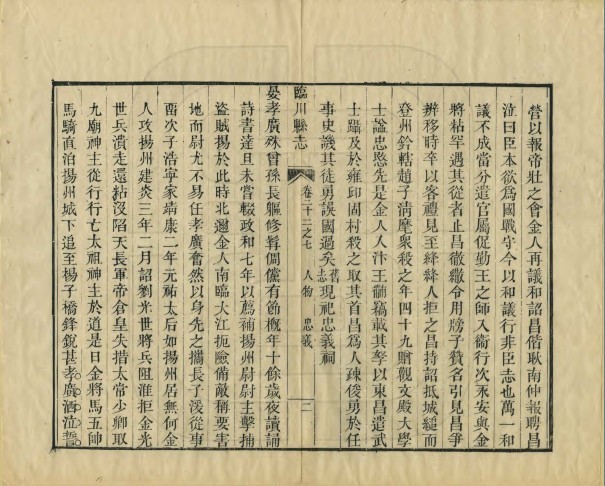 營以報帝壯之會金人再議和詔昌偕耿南仲報聘昌
泣曰臣本欲為國戰守今以和議行非臣志也萬一和
議不成當分遣官屬促勤王之師入衞行次永安與金
將粘罕遇其從者止昌徹繖令用牓子贊名引見昌爭
辨移時卒以客禮見至絳絳人拒之昌持詔抵城縋而
登州鈐轄趙子清摩衆殺之年四十九贈觀文殿大學
士諡忠愍先是金人入汴王黼竊載其孥以東昌遣武
士躡及於雍邱固村殺之取其首昌為人疎俊勇於任
事史譏其徒勇誤國過矣舊志現祀忠義祠
臨川縣志 卷三十二之七 人物 忠義 二
晏孝廣殊曾孫長軀修髯倜儻有節概年十餘歲夜讀誦
詩書達旦未嘗輟政和七年以薦補揚州尉尉主擊捕
盜賊揚於此時北邇金人南臨大江扼險備敵稱要害
地而尉尤不易任孝廣奮然以身先之攜長子湲從事
而次子浩寧家靖康二年元祐太后如揚州居無何金
人攻揚州建炎三年二月詔劉光世將兵阻淮拒金光
世兵潰走還粘沒陷天長軍帝倉皇失措太常少卿取
九廟神主從行行亡太祖神主於道是日金將馬五帥
馬騎直泊揚州城下追至楊子橋鋒銳甚孝廣酒泣誓